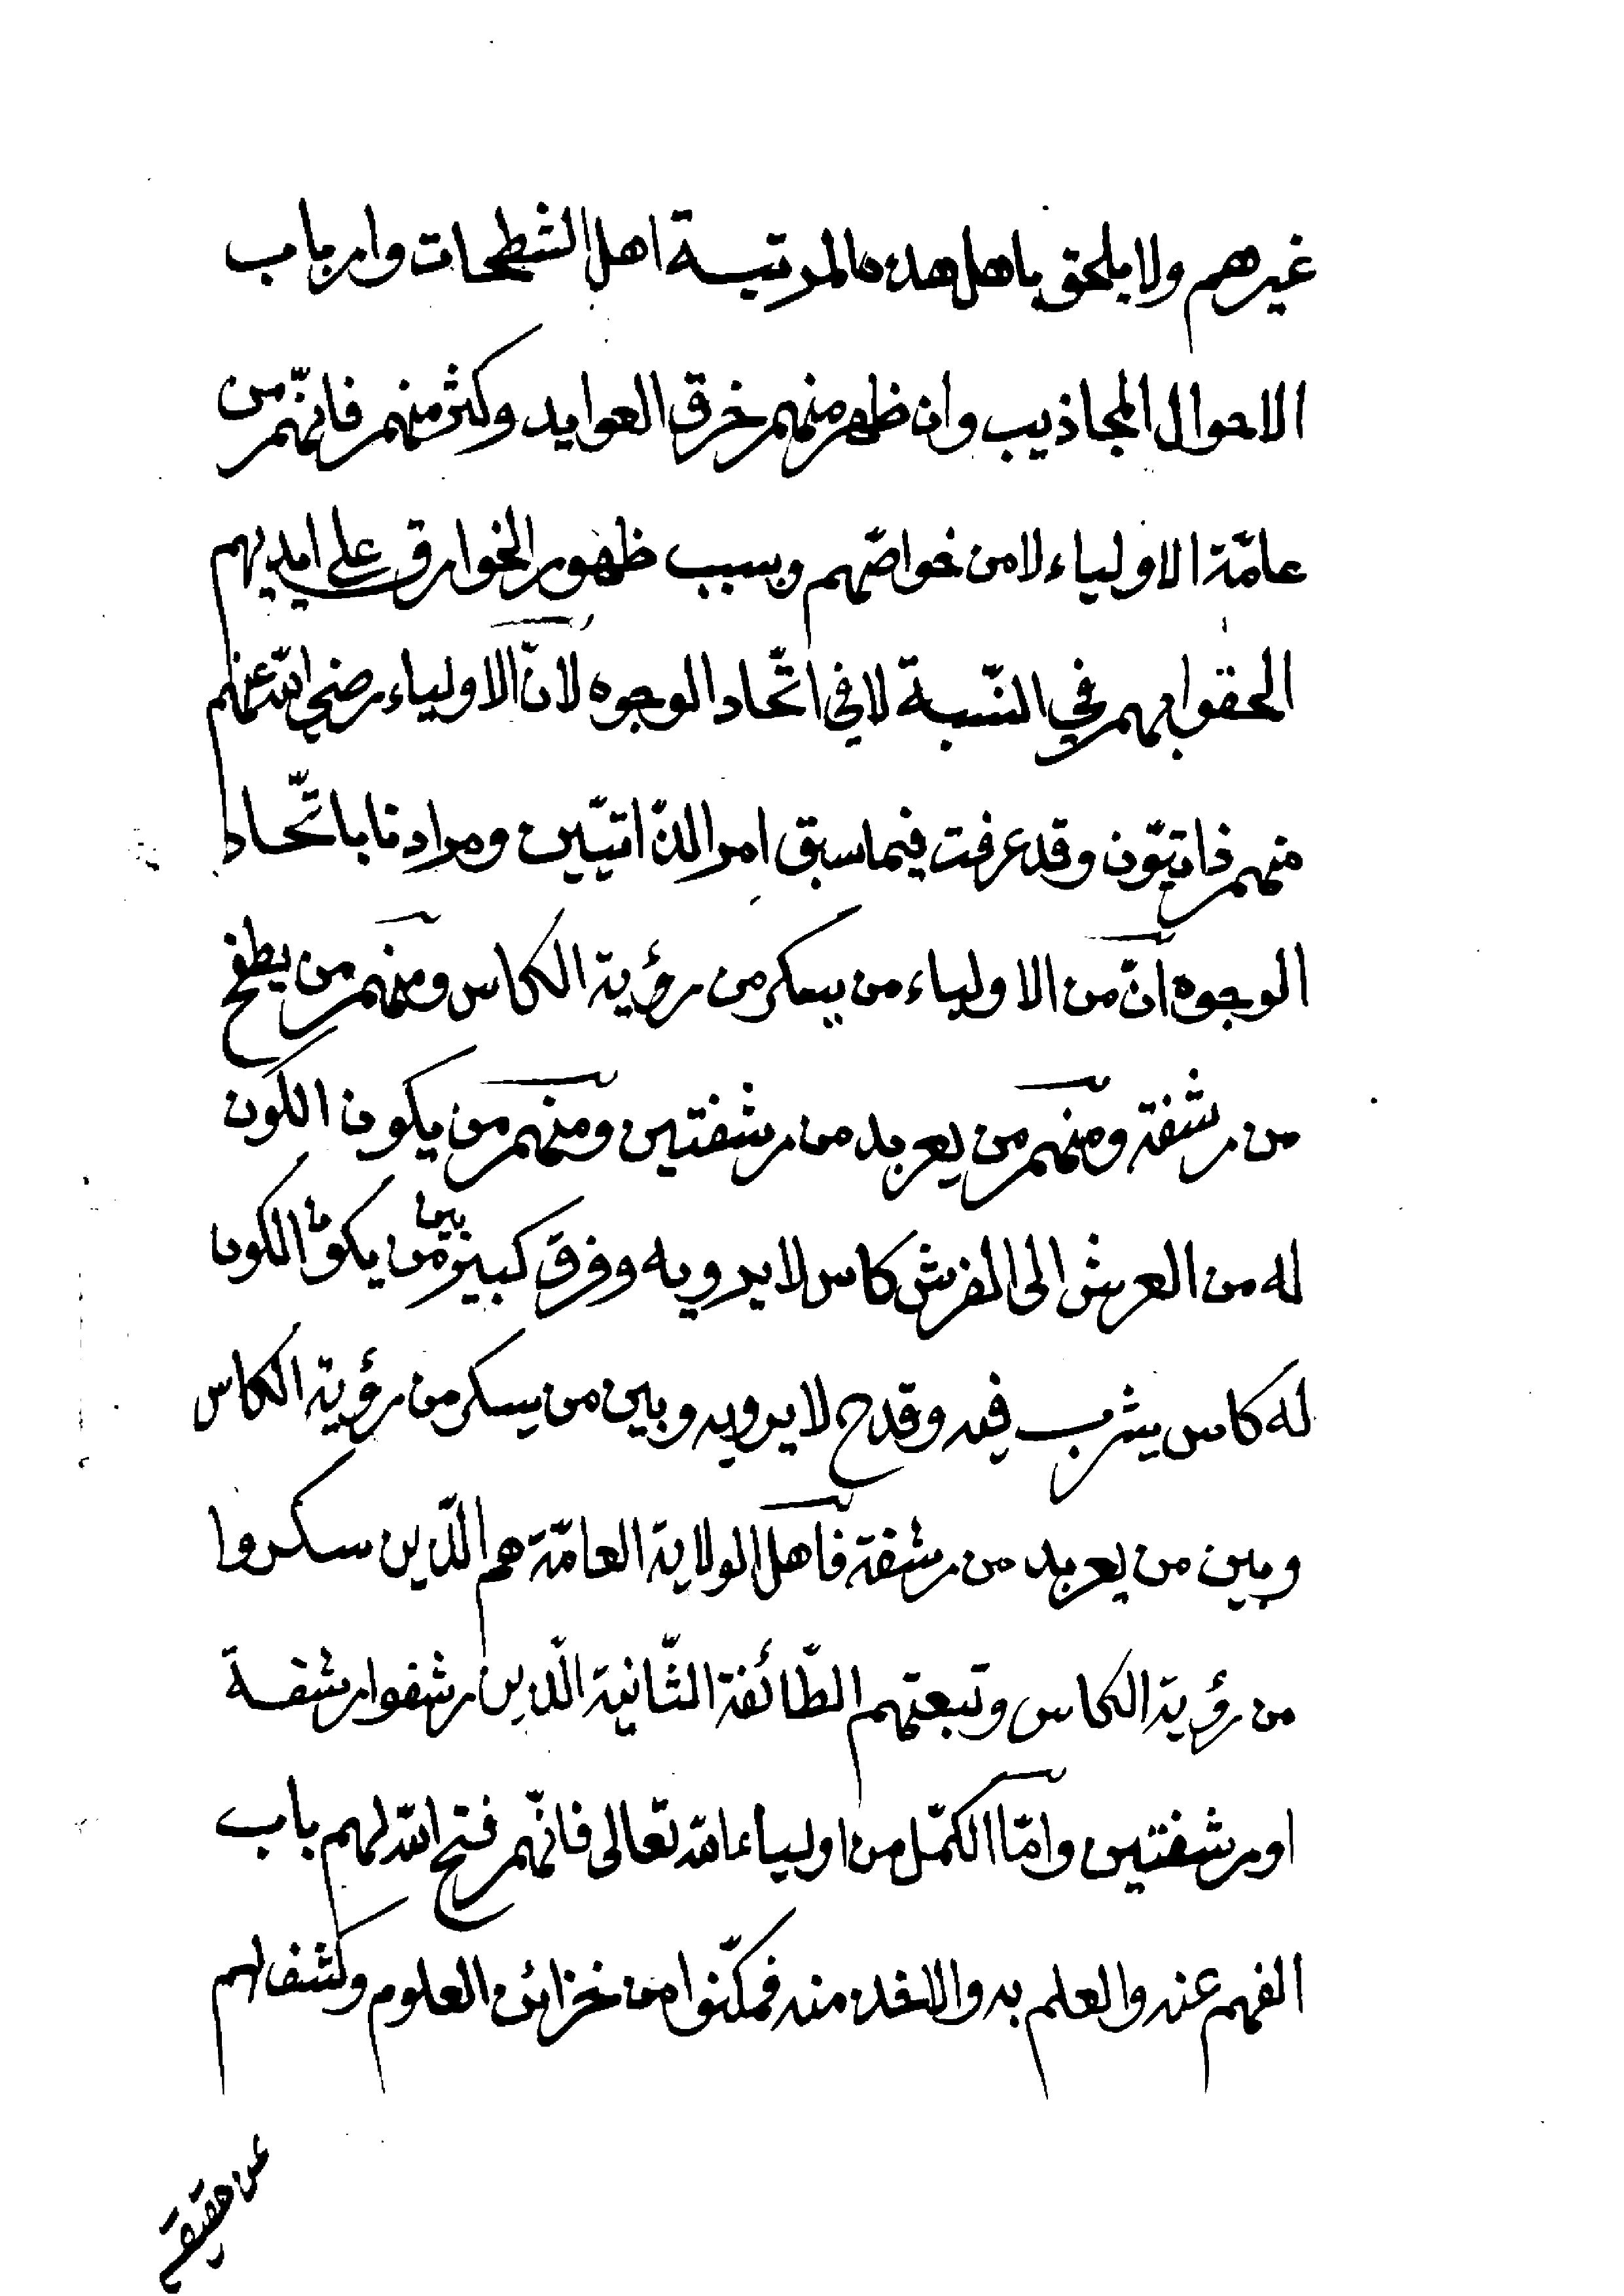 غيرهم ولا يلحق باهل هذه المرتبة اهل الشطحات وارباب
الاحوال المجاذيب وان ظهر منهم خرق العوايد وكثر منهم فانّهم من
عامّة الاولياء لا من خواصّهم وبسبب ظهور الخوارق على ايديهم
الحقوا بهم في النّسبة لا في اتّحاد الوجوه لانّ الاولياء رضي الله عنهم
منهم ذاتيّون وقد عرفت فيما سبق امر الذّاتيّين ومرادنا باتّحاد
الوجوه انّ من الاولياء من يسكر من رؤية الكاس ومنهم من يطفح
من رشفة ومنهم من يعربد من رشفتين ومنهم من يكون الكون
له من العرش الى الفرش كاس لا يرويه وفرق كبير بين من يكون الكون
له كاس يشرب فيه وقدح لا يرويه وبين من يسكر من رؤية الكاس
وبين من يعربد من رشفة فاهل الولاية العامّة هم الّذين سكروا
من رؤية الكاس وتبعتهم الطّائفة الثّانية الّذين رشفوا رشفة
او رشفتين وامّا الكمّل من اولياء الله تعالى فانّهم فتح الله لهم باب
الفهم عنه والعلم به والاخذ منه فمكّنوا من خزائن العلوم وكشف لهم
عن حقيقة